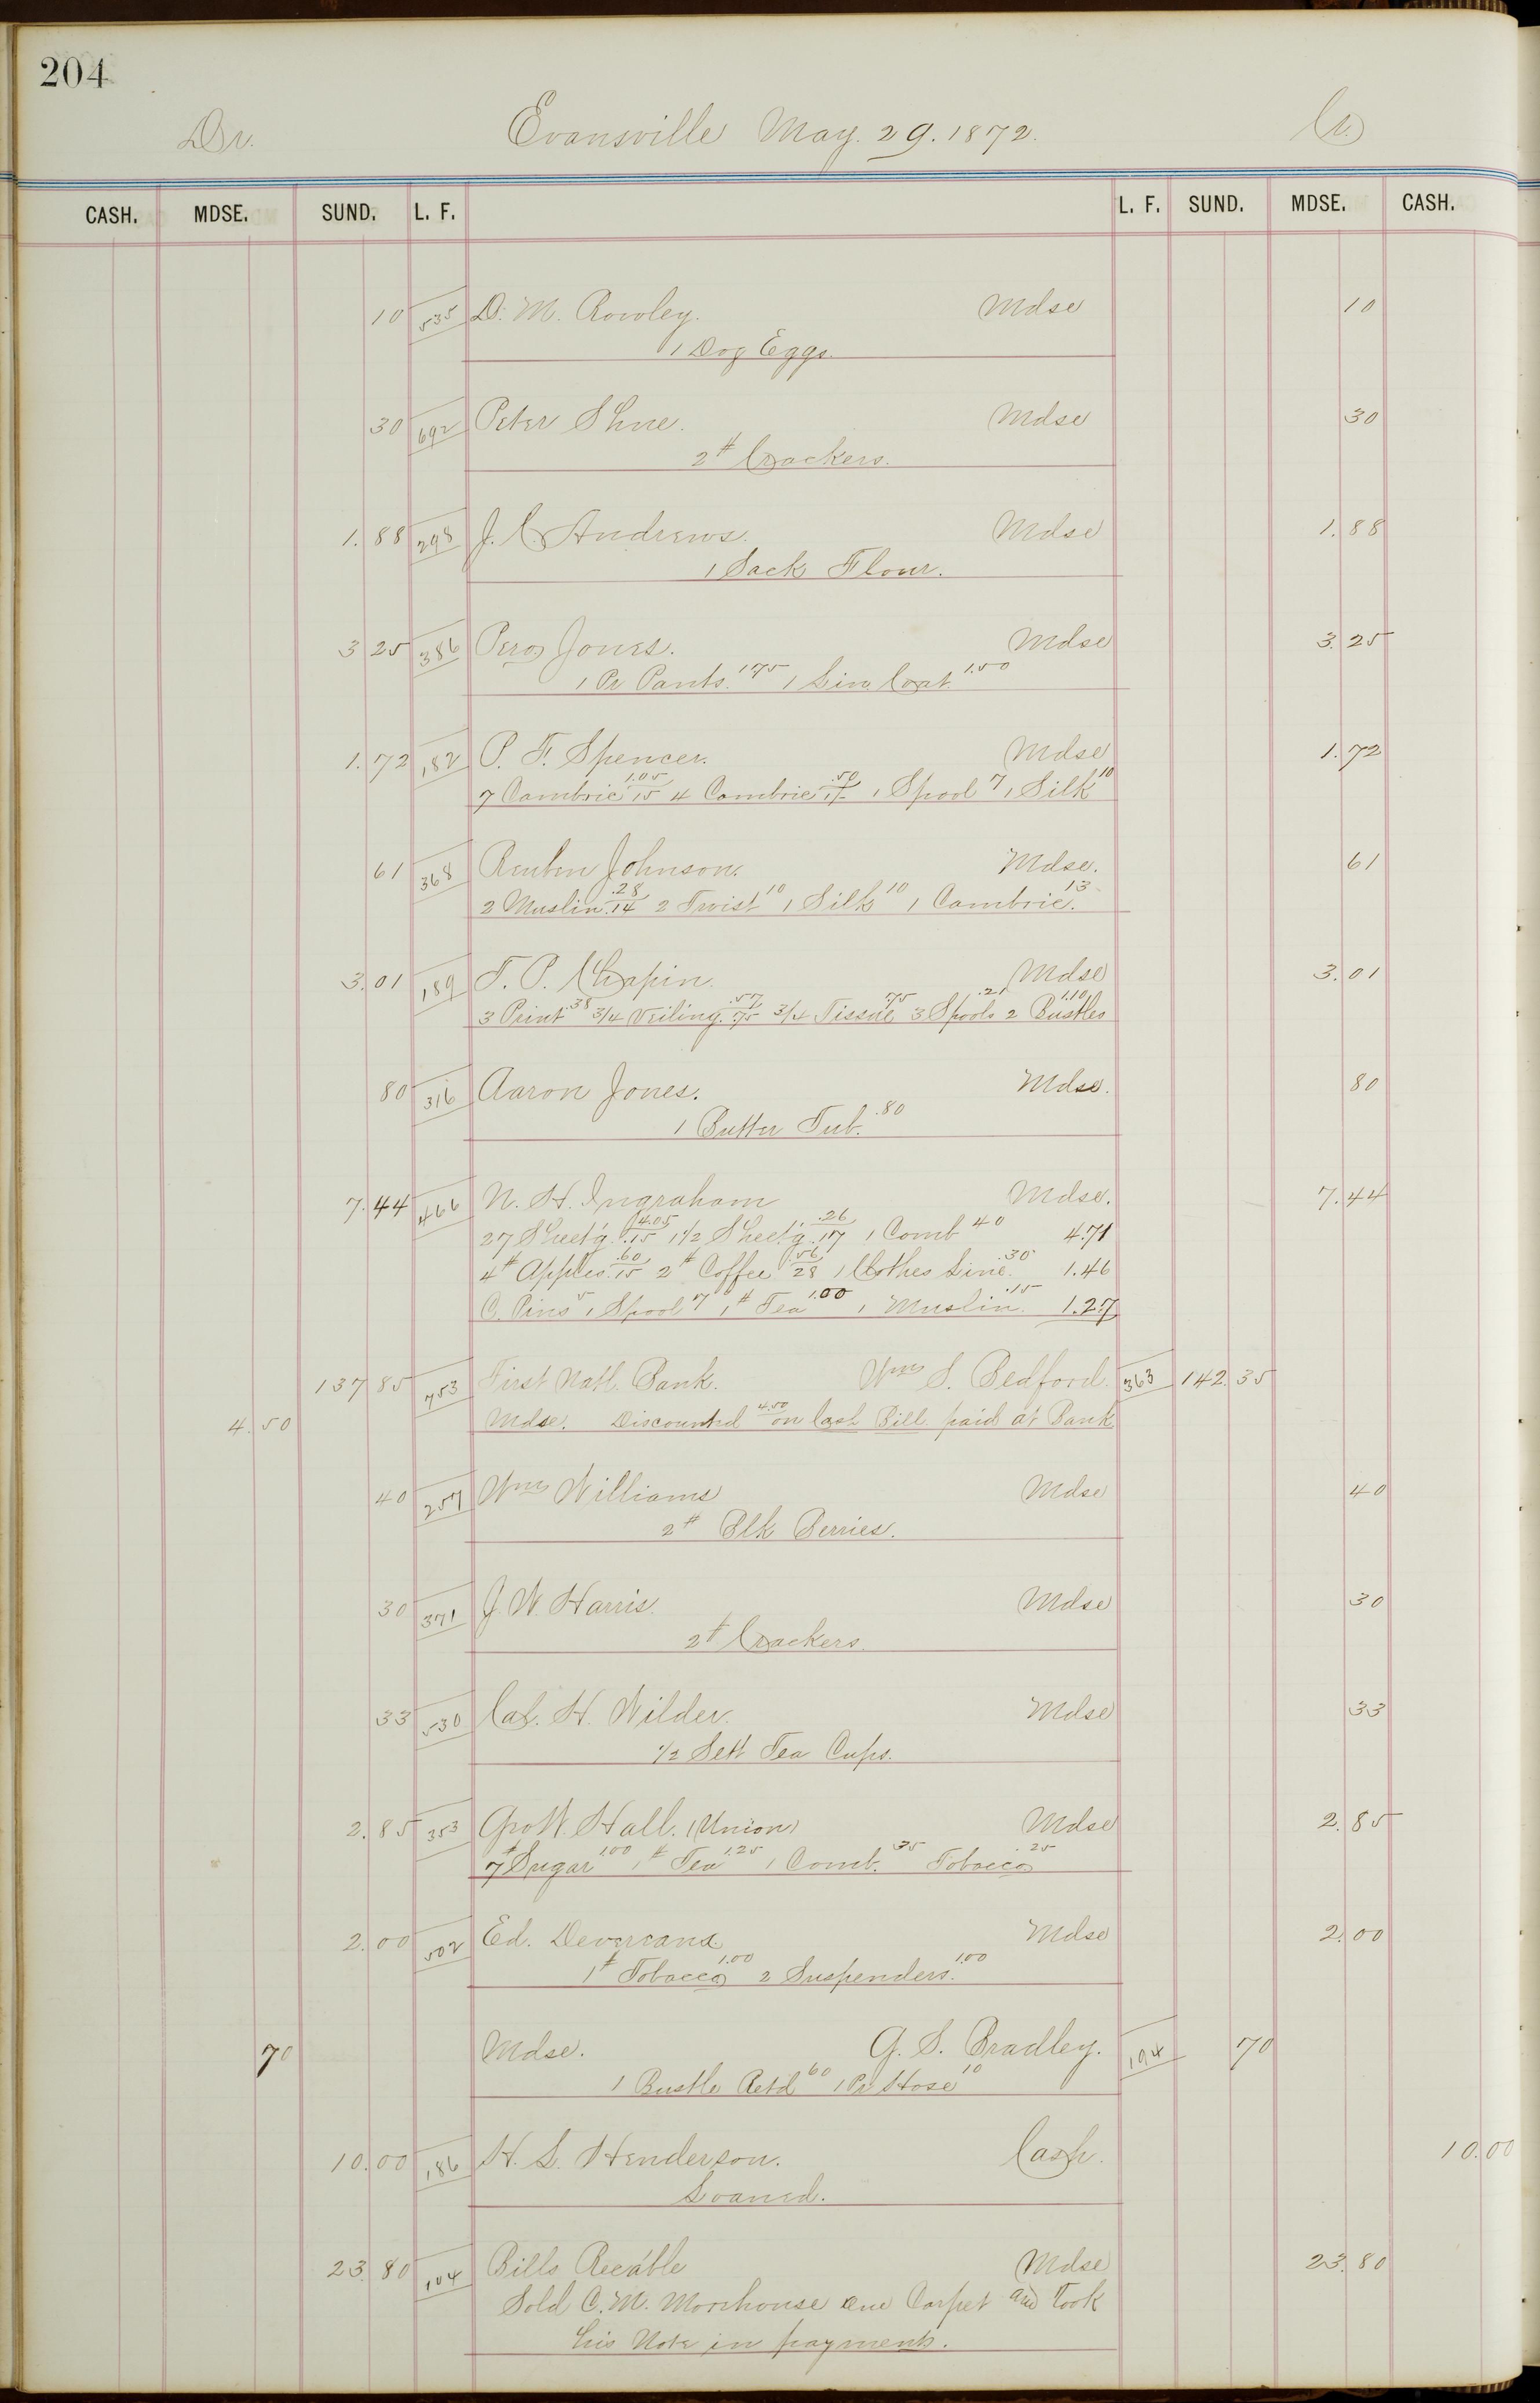 204
Dr. Evansville May. 29. 1872. Cr.
CASH. MDSE. SUND. L. F. L. F. SUND. MDSE. CASH.
10 535 D. M. Rowley. Mdse 10
1 Doz Eggs.
30 692 Peter Shue. Mdse 30
2# Crackers.
1.88 298 J. C. Andrews. Mdse 1.88
1 Sack Flour.
3 25 386 Jones. Mdse 3.25
1 Pr Pants. 1.75 1 Lin Coat. 1.50
1.72 182 P. F. Spencer. Mdse 1.72
7 Cambric 1.05 15 4 Cambric .50 1 Spool 7 1 Silk 10
61 368 Reuben Johnson. Mdse. 61
2 Muslin .28 .14 2 Twist 10 1 Silk 10 1 Cambric. 13
3.01 189 T. P. Chapin. Mdse 3.01
3 Print .38 3/4 Veiling. .57 .75 3/4 Tissue .75 3 Spools .21 2 Bustles 1.10
80 316 Aaron Jones. Mdse. 80
1 Butter Tub. .80
7.44 466 N. H. Ingraham Mdse. 7.44
27 Sheet'g. 4.05 .15 1 1/2 Sheet'g. .26 .17 1 Comb 40 4.71
4# Apples .60 .15 2# Coffee .56 28 1 Clothes Line. .30 1.46
C. Pins 5 1 Spool 7 1# Tea 1.00 1 Muslin. .15 1.27
137 85 753 First Natl. Bank. Wm S. Bedford. 363 142.35
4.50 Mdse. Discounted 4.50 on Cash Bill paid at Bank
40 257 Wm Williams Mdse 40
2# Blk Berries.
30 371 J. W. Harris. Mdse 30
2# Crackers.
33 530 Cal. H. Wilder. Mdse 33
1/2 Sett Tea Cups.
2.85 353 Geo W. Hall. (Union) Mdse 2.85
7# Sugar 1.00 1# Tea 1.25 1 Comb. .35 Tobacco .25
2.00 502 Ed. Mdse 2.00
1# Tobacco 1.00 2 Suspenders. 1.00
70 Mdse. G. S. Bradley. 194 70
1 Bustle Retd 60 1 Pr Hose 10
10.00 186 H. L. Henderson. Cash. 10.00
Loaned.
23.80 104 Bills Rec'able Mdse 23.80
Sold C. M. Morehouse one Carpet and took
his Note in payment.